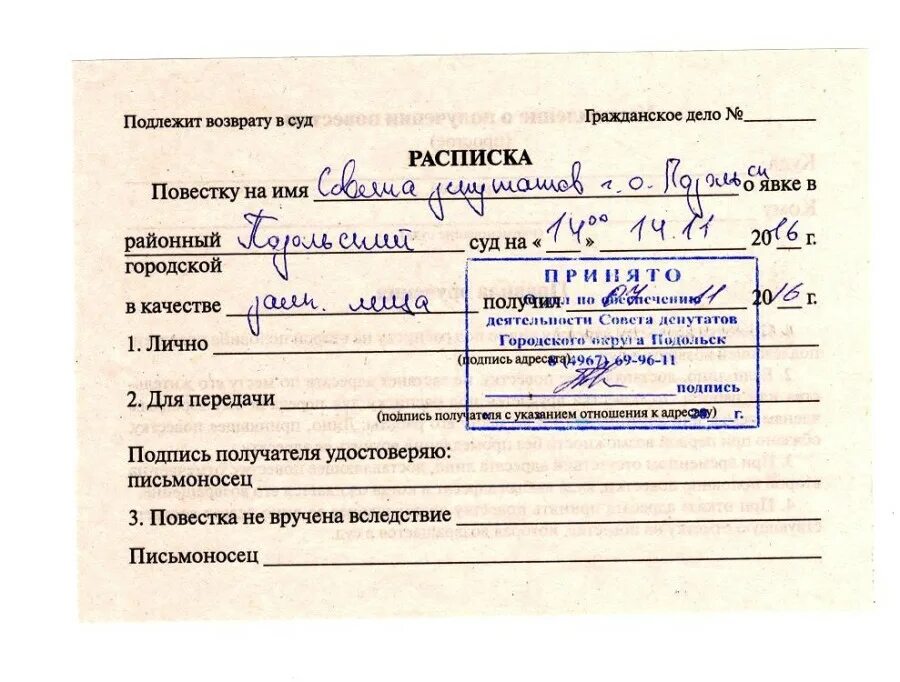 Подлежит возврату в суд
Гражданское дело №
РАСПИСКА
Повестку на имя Совета депутатов г.о. Подольск о явке в
районный Подольский суд на «14⁰⁰» 14.11 2016 г.
городской
в качестве заин. лица получил 07 11 2016 г.
1. Лично
(подпись адресата)
2. Для передачи
(подпись получателя с указанием отношения к адресату)
Подпись получателя удостоверяю:
письмоносец
3. Повестка не вручена вследствие
Письмоносец
ПРИНЯТО
Отдел по обеспечению
деятельности Совета депутатов
Городского округа Подольск
8 (4967) 69-96-11
подпись
20 г.